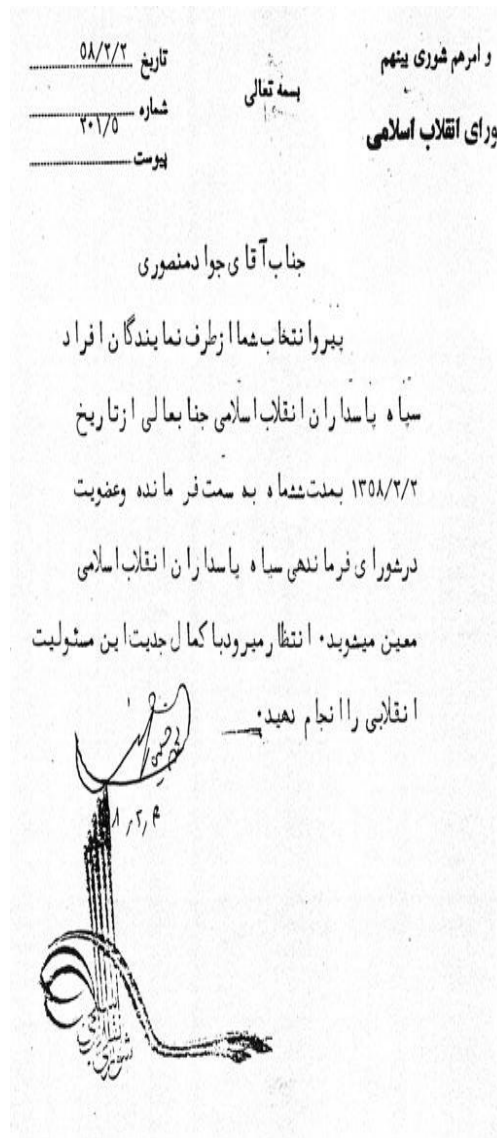 و امرهم شوری بینهم
ورای انقلاب اسلامی
بسمه تعالی
تاریخ ۵۸/۲/۲
شماره ۲۰۱/۵
پیوست
جناب آقای جواد منصوری
پیرو انتخاب شما از طرف نمایندگان افراد
سپاه پاسداران انقلاب اسلامی جنابعالی از تاریخ
۱۳۵۸/۲/۲ بمدت ششماه به سمت فرمانده وعضویت
درشورای فرماندهی سپاه پاسداران انقلاب اسلامی
معین میشوید. انتظار میرود با کمال جدیت این مسئولیت
انقلابی را انجام دهید.